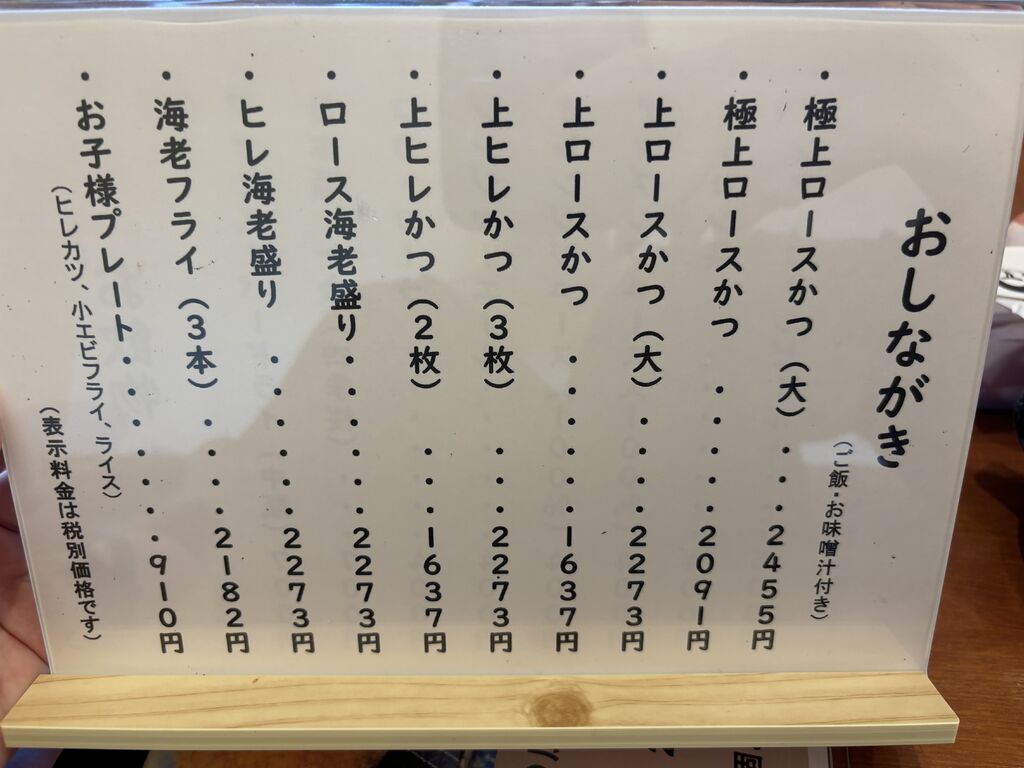 おしながき
(ご飯・お味噌汁付き)
・極上ロースかつ(大)・・・2455円
・極上ロースかつ・・・・・2091円
・上ロースかつ(大)・・・・2273円
・上ロースかつ・・・・・・・1637円
・上ヒレかつ(3枚)・・・2273円
・上ヒレかつ(2枚)・・・1637円
・ロース海老盛り・・・・・・2273円
・ヒレ海老盛り・・・・・・2273円
・海老フライ(3本)・・・・2182円
・お子様プレート・・・・・・・910円
(ヒレカツ、小エビフライ、ライス)
(表示料金は税別価格です)